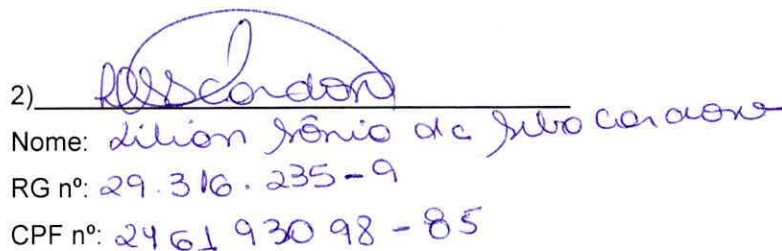 2)
Nome: Lilian Sônia da Silva Cardona
RG nº: 29.316.235-9
CPF nº: 246193098-85